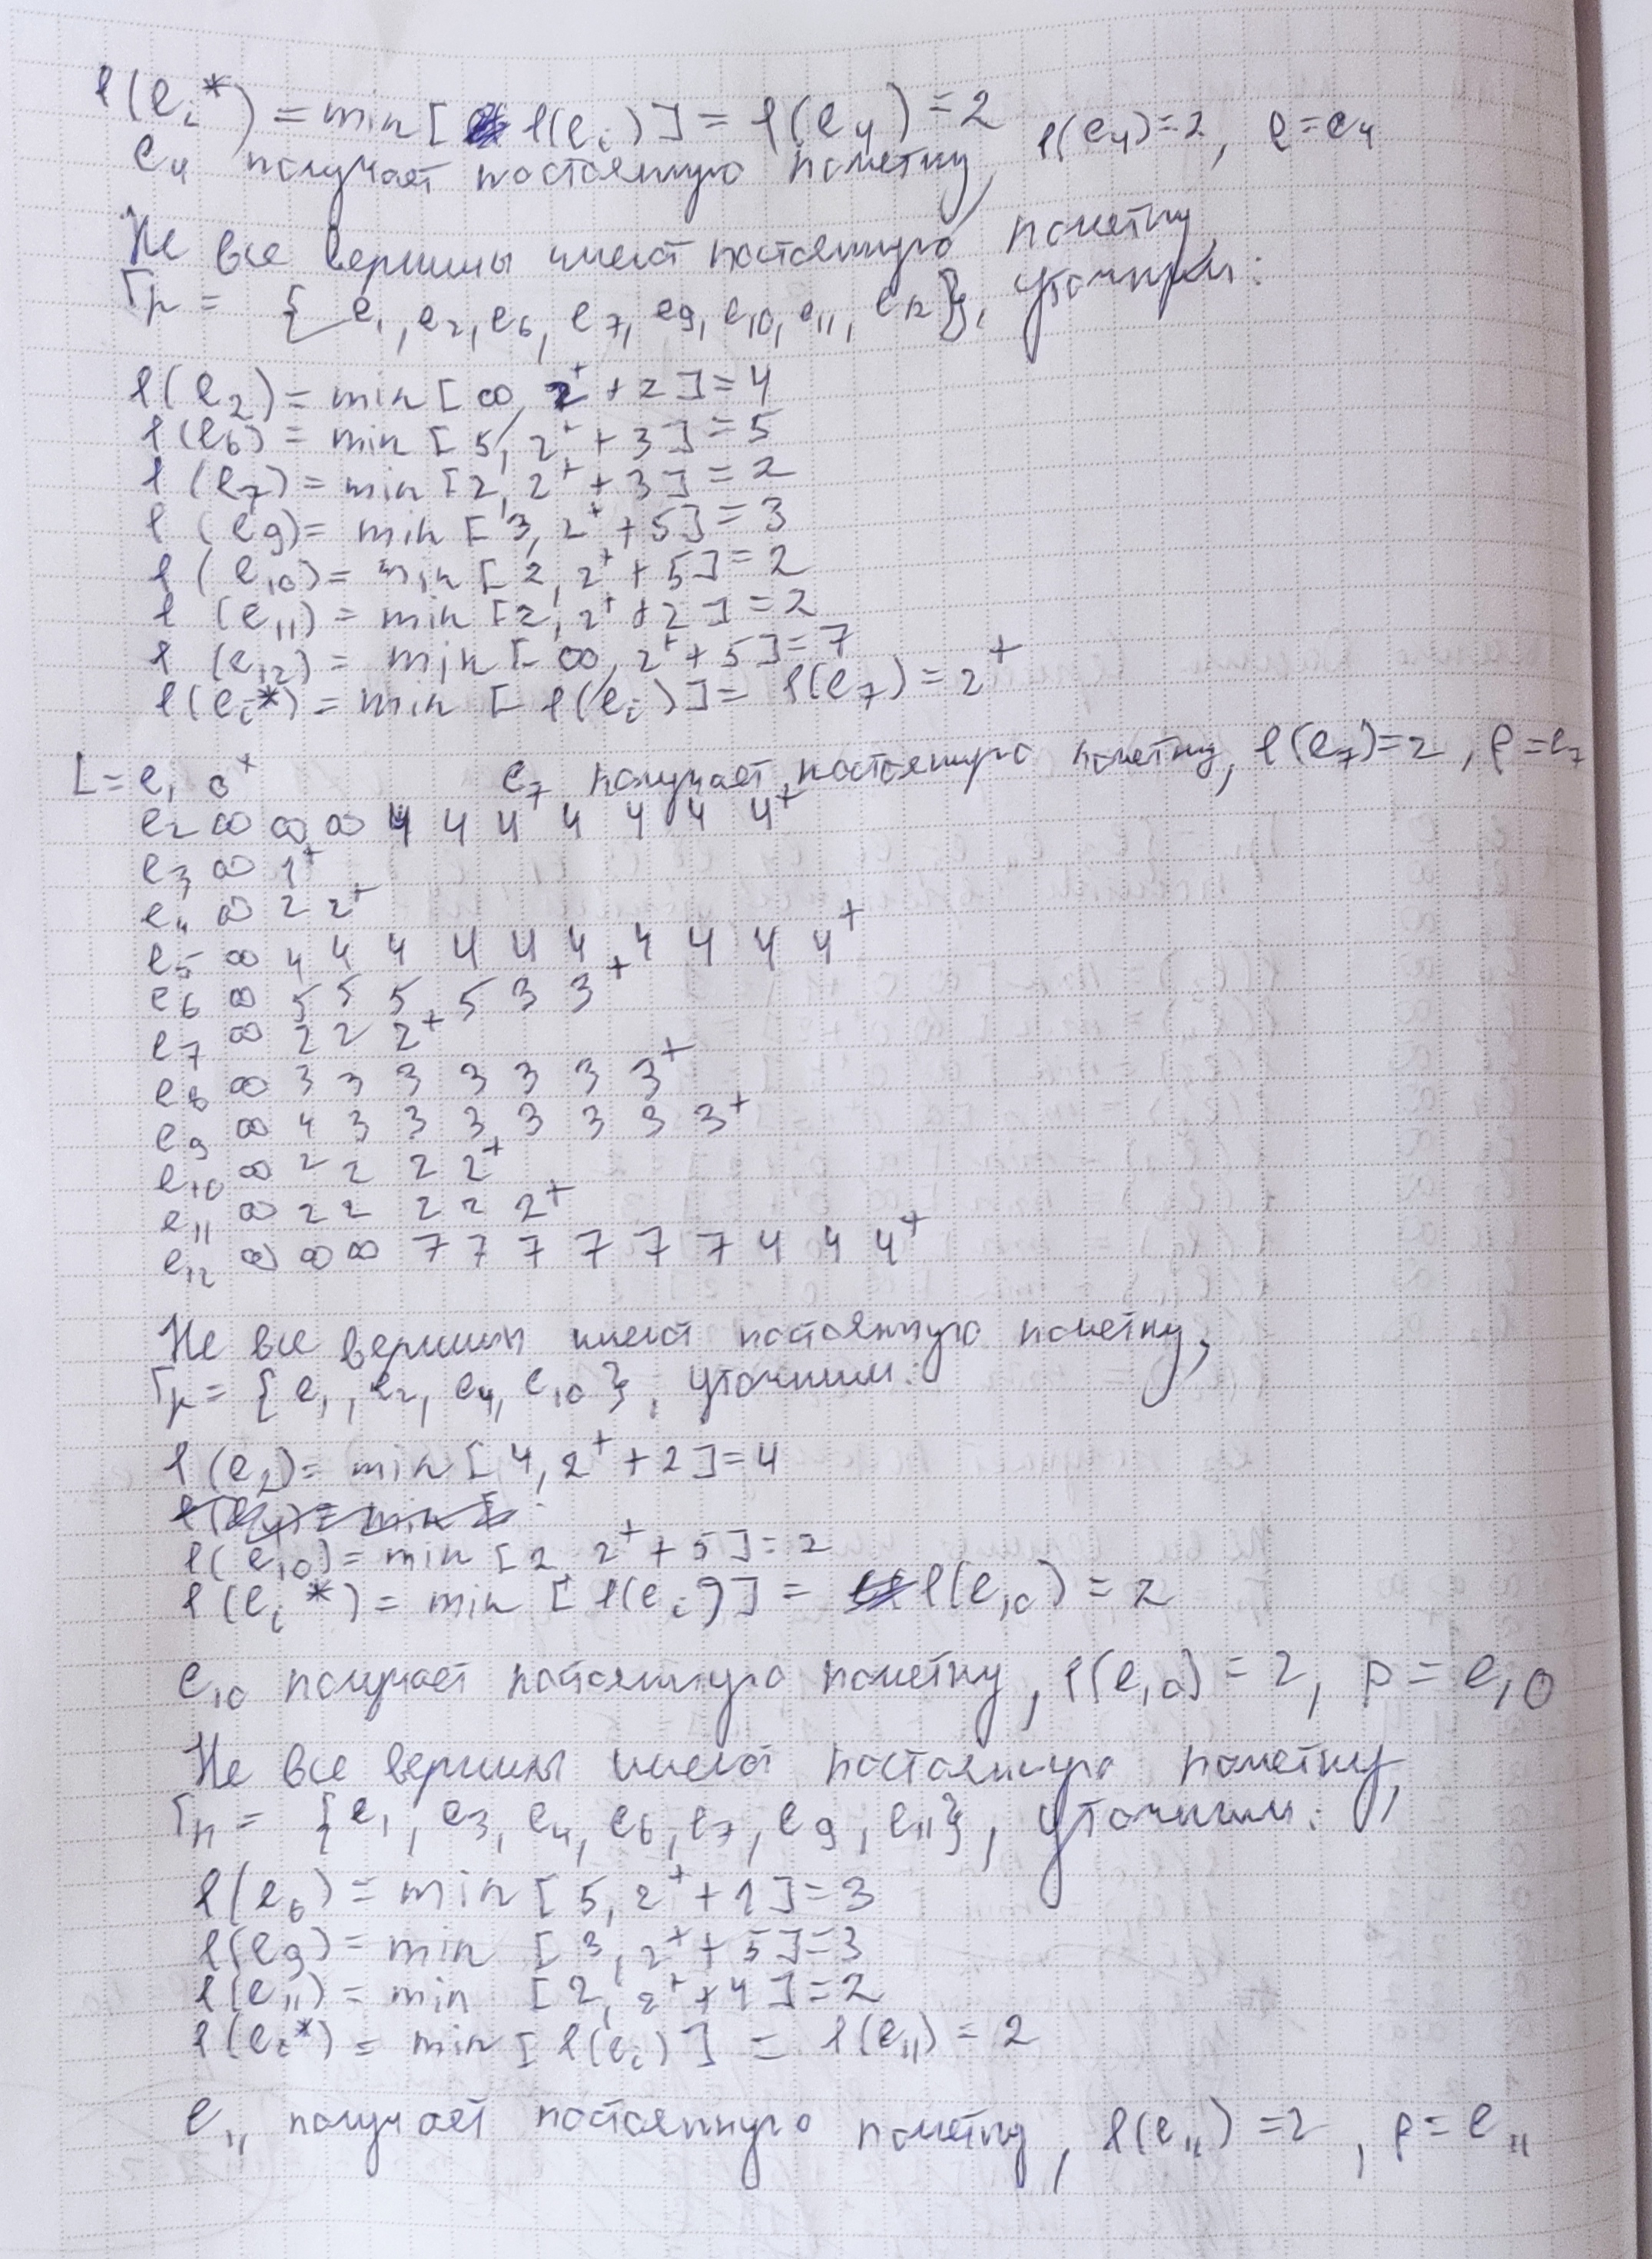 l(e_i*) = min[ l(e_i)] = l(e_4) = 2
e_4 получает постоянную пометку, l(e_4)=2, p=e_4
Не все вершины имеют постоянную пометку,
Гp = {e_1, e_2, e_6, e_7, e_9, e_10, e_11, e_12}, уточним:
l(e_2) = min[∞, 2⁺+2]=4
l(e_6) = min[5, 2⁺+3]=5
l(e_7) = min[2, 2⁺+3]=2
l(e_9) = min[3, 2⁺+5]=3
l(e_10) = min[2, 2⁺+5]=2
l(e_11) = min[2, 2⁺+2]=2
l(e_12) = min[∞, 2⁺+5]=7
l(e_i*) = min[l(e_i)]= l(e_7)=2⁺
e_7 получает постоянную пометку, l(e_7)=2, p=e_7
L= e_1 0⁺
e_2 ∞ ∞ ∞ 4 4 4 4 4 4 4⁺
e_3 ∞ 1⁺
e_4 ∞ 2 2⁺
e_5 ∞ 4 4 4 4 4 4 4 4 4 4⁺
e_6 ∞ 5 5 5 5 3 3⁺
e_7 ∞ 2 2 2⁺
e_8 ∞ 3 3 3 3 3 3 3⁺
e_9 ∞ 4 3 3 3 3 3 3 3⁺
e_10 ∞ 2 2 2 2⁺
e_11 ∞ 2 2 2 2 2⁺
e_12 ∞ ∞ ∞ 7 7 7 7 7 7 4 4 4⁺
Не все вершины имеют постоянную пометку,
Гp = {e_1, e_2, e_4, e_10}, уточним:
l(e_2) = min[4, 2⁺+2]=4
l(e_10) = min[2, 2⁺+5]=2
l(e_i*) = min[l(e_i)] = l(e_10) = 2
e_10 получает постоянную пометку, l(e_10) = 2, p = e_10
Не все вершины имеют постоянную пометку,
Гp = {e_1, e_3, e_4, e_6, e_7, e_9, e_11}, уточним:
l(e_6) = min[5, 2⁺+1]=3
l(e_9) = min[3, 2⁺+5]=3
l(e_11) = min[2, 2⁺+4]=2
l(e_i*) = min[l(e_i)] = l(e_11) = 2
e_11 получает постоянную пометку, l(e_11)=2, p=e_11